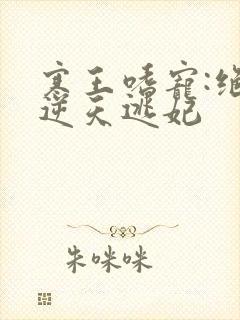 寒王嗜宠:绝
逆天逃妃
朱咪咪